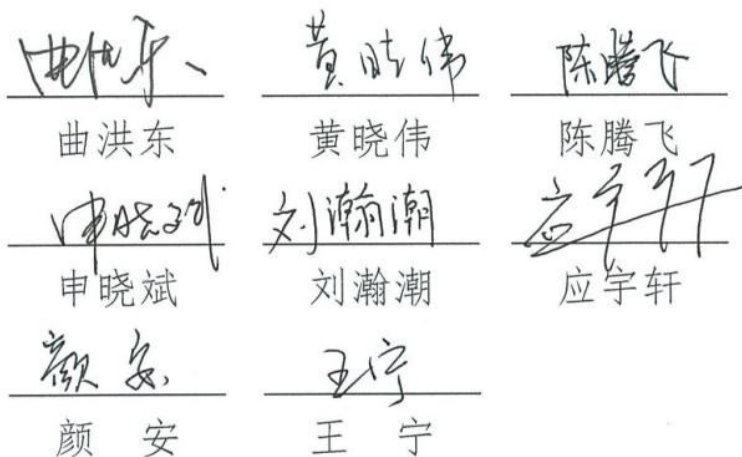 曲洪东 黄晓伟 陈腾飞
曲洪东 黄晓伟 陈腾飞
申晓斌 刘瀚潮 应宇轩
申晓斌 刘瀚潮 应宇轩
颜安 王宁
颜 安 王 宁